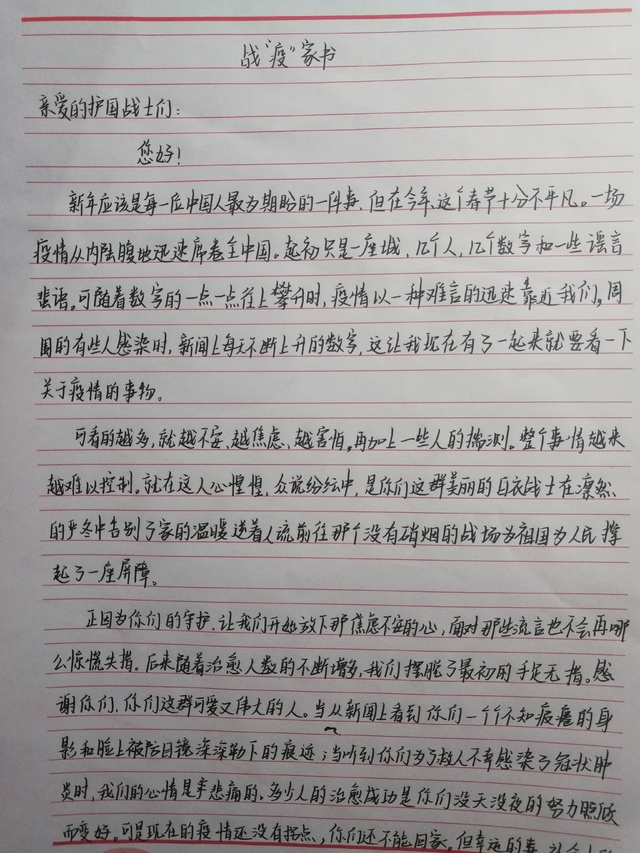 战“疫”家书
亲爱的护国战士们:
您好!
新年应该是每一位中国人最为期盼的一件事,但在今年,这个春节十分不平凡。一场
疫情从内陆腹地迅速席卷全中国。起初只是一座城,几个人,几个数字和一些谣言
蜚语。可随着数字的一点一点往上攀升时,疫情以一种难言的迅速靠近我们。周
围的有些人感染时,新闻上每天不断上升的数字,这让我现在有了一起来就要看一下
关于疫情的事物。
可看的越多,就越不安、越焦虑、越害怕。再加上一些人的揣测。整个事情越来
越难以控制。就在这人心惶惶,众说纷纭中,是你们这群美丽的白衣战士在凛然
的严冬中告别了家的温暖逆着人流前往那个没有硝烟的战场为祖国为人民撑
起了一座屏障。
正因为你们的守护,让我们开始放下那焦虑不安的心,面对那些流言也不会再哪
么惊慌失措。后来随着治愈人数的不断增多,我们摆脱了最初的手足无措。感
谢你们,你们这群可爱又伟大的人。当从新闻上看到你们一个个不知疲惫的身
影和脸上被防目镜深深勒下的痕迹;当听到你们为了救人不幸感染了冠状肺
炎时,我们的心情是悲痛的。多少人的治愈成功是你们没天没夜的努力照顾
而变好。可是现在的疫情还没有拐点,你们还不能回家。但幸运的事,